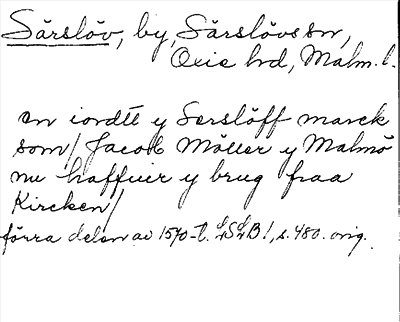 Särslöv, by, Särslövs sn,
Oxie hd, Malm. l.
en iordtt y Serslöff marck
som/ Jacob Möller y Malmö
nu haffuer y brug fraa
Kircken/
förra delen av 1570-t. s. 480. orig.